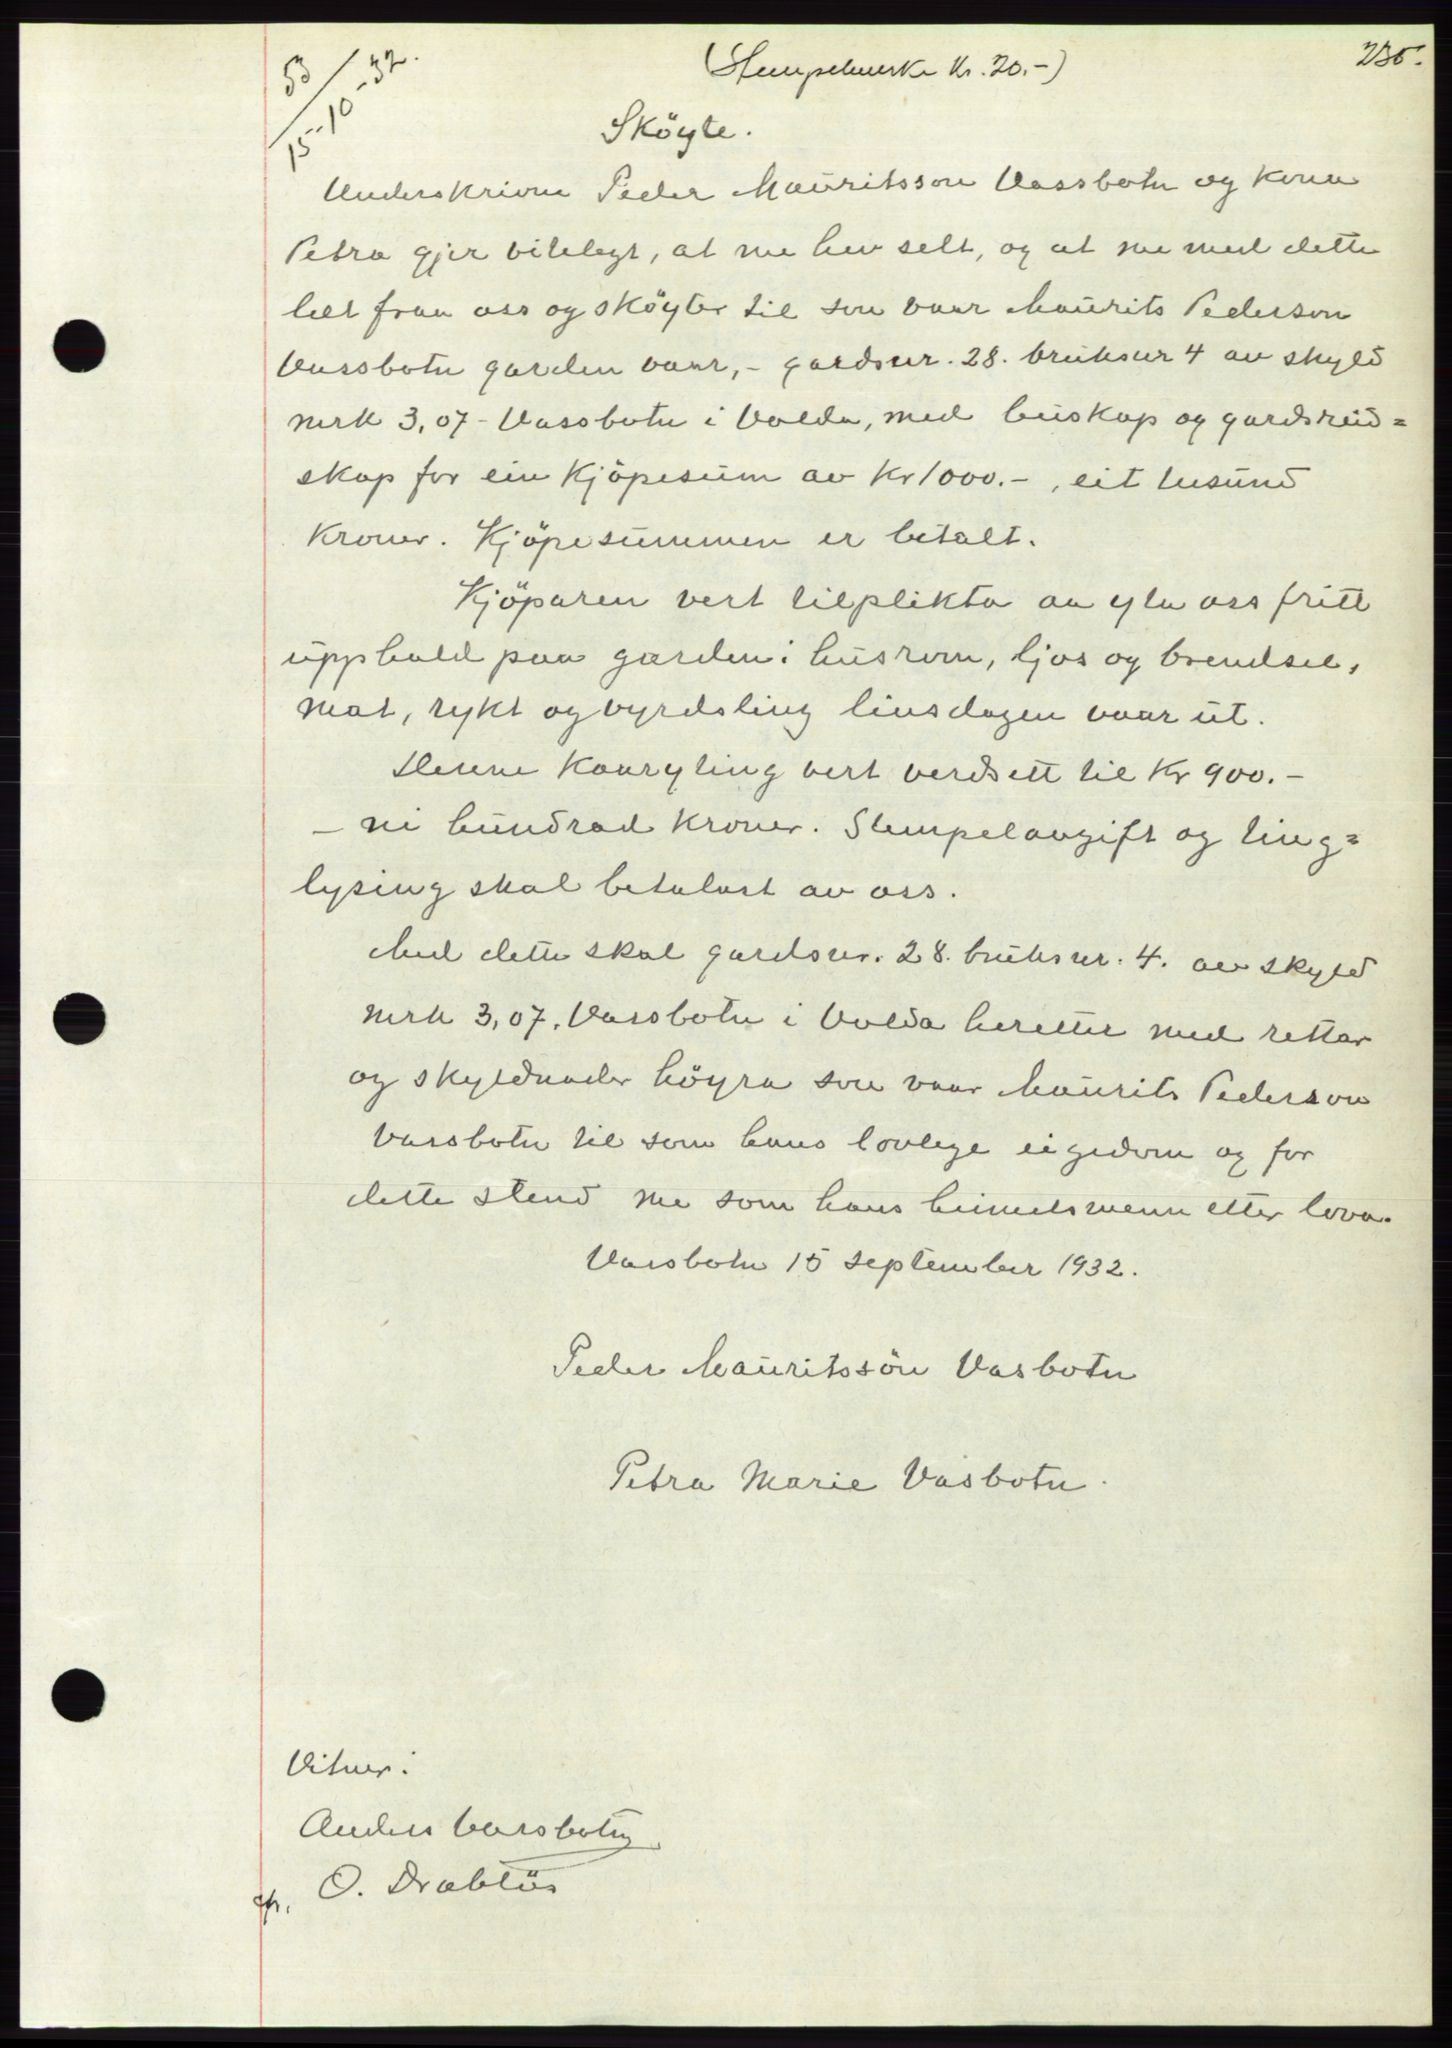 235.
53
15-10-32.
(Stempelmerke kr. 20.-)
Sköyte.
Underskrivne Peder Mauritsson Vassbotn og kona
Petra gjer vitelegt, at me hev selt, og at me med dette
let fraa oss og sköyter til son vaar Maurits Pederson
Vassbotn garden vaar, - gardsnr. 28. bruksnr 4 av skyld
mrk 3,07 - Vassbotn i Volda, med buskap og gardsreid=
skap for ein kjöpesum av kr 1000.-, eit tusund
kroner. Kjöpesummen er betalt.
Kjöparen vert tilplikta aa yta oss fritt
upphald paa garden: husrom, ljos og brendsel,
mat, rykt og vyrdsling livsdagen vaar ut.
Denne kaaryting vert verdsett til kr 900.-
- ni hundrad kroner. Stempelavgift og ting=
lysing skal betalast av oss.
Med dette skal gardsnr. 28. bruksnr. 4. av skyld
mrk 3,07. Vassbotn i Volda heretter med rettar
og skyldnader höyra son vaar Maurits Pederson
Vassbotn til som hans lovlege eigedom og for
dette stend me som hans heimelsmenn etter lova.
Vassbotn 15 september 1932.
Peder Mauritssön Vasbotn
Petra Marie Vasbotn.
Vitner:
Anders Vassbotn
O. Drabløs